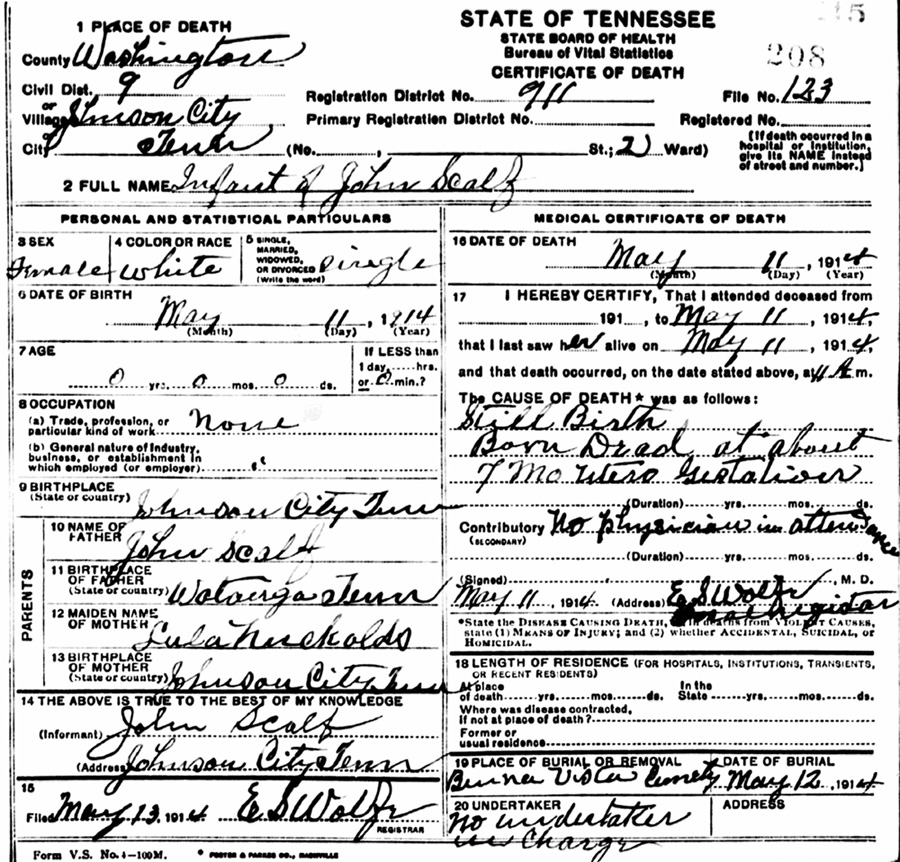 STATE OF TENNESSEE
STATE BOARD OF HEALTH
Bureau of Vital Statistics
CERTIFICATE OF DEATH
208
1 PLACE OF DEATH
County Washington
Civil Dist. 9
or
Village Johnson City
or
City Tenn (No. , St.; 2 Ward)
Registration District No. 911 File No. 123
Primary Registration District No. Registered No.
[If death occurred in a
hospital or institution,
give its NAME instead
of street and number.]
2 FULL NAME Infant of John Scalf
PERSONAL AND STATISTICAL PARTICULARS
3 SEX
Female
4 COLOR OR RACE
White
5 SINGLE,
MARRIED,
WIDOWED,
OR DIVORCED
(Write the word)
Single
6 DATE OF BIRTH
May 11, 1914
(Month) (Day) (Year)
7 AGE
0 yrs. 0 mos. 0 ds.
If LESS than
1 day, hrs.
or 0 min.?
8 OCCUPATION
(a) Trade, profession, or
particular kind of work None
(b) General nature of industry,
business, or establishment in
which employed (or employer) "
9 BIRTHPLACE
(State or country) Johnson City Tenn
PARENTS
10 NAME OF
FATHER
John Scalf
11 BIRTHPLACE
OF FATHER
(State or country) Watauga Tenn
12 MAIDEN NAME
OF MOTHER
Lula Nuckolds
13 BIRTHPLACE
OF MOTHER
(State or country) Johnson City Tenn
14 THE ABOVE IS TRUE TO THE BEST OF MY KNOWLEDGE
(Informant) John Scalf
(Address) Johnson City Tenn
15
Filed May 13, 1914 E S Wolfe
REGISTRAR
Form V.S. No. 4-100M. FOSTER & PARKES CO., NASHVILLE
MEDICAL CERTIFICATE OF DEATH
16 DATE OF DEATH
May 11, 1914
(Month) (Day) (Year)
17 I HEREBY CERTIFY, That I attended deceased from
191 , to May 11, 1914,
that I last saw her alive on May 11, 1914,
and that death occurred, on the date stated above, at 11 A m.
The CAUSE OF DEATH* was as follows:
Still Birth
Born Dead at about
7 Mo Utero Gestation
(Duration) yrs. mos. ds.
Contributory No physician in attendance
(SECONDARY)
(Duration) yrs. mos. ds.
(Signed) , M. D.
May 11, 1914 (Address) E S Wolfe
*State the DISEASE CAUSING DEATH, deaths from VIOLENT CAUSES,
state (1) MEANS OF INJURY; and (2) whether ACCIDENTAL, SUICIDAL, OR
HOMICIDAL.
18 LENGTH OF RESIDENCE (FOR HOSPITALS, INSTITUTIONS, TRANSIENTS,
OR RECENT RESIDENTS)
At place
of death yrs. mos. ds.
In the
State yrs. mos. ds.
Where was disease contracted,
if not at place of death?
Former or
usual residence
19 PLACE OF BURIAL OR REMOVAL
Buna Vista Cemety
DATE OF BURIAL
May 12, 1914
20 UNDERTAKER
No undertaker
in Charge
ADDRESS